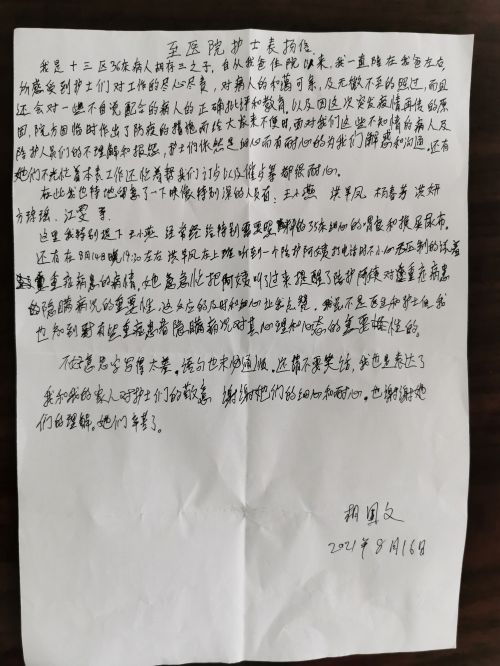 至医院护士表扬信
我是十三区36床病人胡存三之子,自从我爸住院以来,我一直陪在我爸左右
的感受到护士们对工作的尽心尽责,对病人的和蔼可亲,及无微不至的照过,而且
还会对一些不自觉配合的病人的正确批评和教育,以及因这次突发疫情再传的原
因,院方因临时作出了防疫的措施而给大家来不便时,面对我们这些不知情的病人及
陪护人员们的不理解和报怨,护士们依然是细心而有耐心的为我们解惑和沟通。还有
她们不光忙着本来工作还忙着帮我们订饭以及催单等都很耐心。
在此我也特地留意了一下映像特别深的人员有:王小燕 洪苹凤 杨春芳 洪妍
方瑶瑶 江雯 等
这里我特别提下王小燕 经常给特别需要照料的35床细心的喂食和换尿尿布。
还有在8月14日晚19:20左右 洪苹凤在上班听到一个陪护阿姨打电话时不小心
重症病患的病情,她急急忙把阿姨叫了过来提醒了陪护阿姨对重症病患
的隐瞒病况的重要性,这反应的及时和细心让我点赞,我虽不是医生和护士但我
也知到对有些重病患者隐瞒病况对其心理和心态的重要性的。
不好意思字写得太差。语句也未必通顺。还请不要笑话,我也是表达了
我和我的家人对护士们的敬意 谢谢她们的细心和耐心。也谢谢她
们的理解。她们辛苦了。
胡国文
2021年8月16日